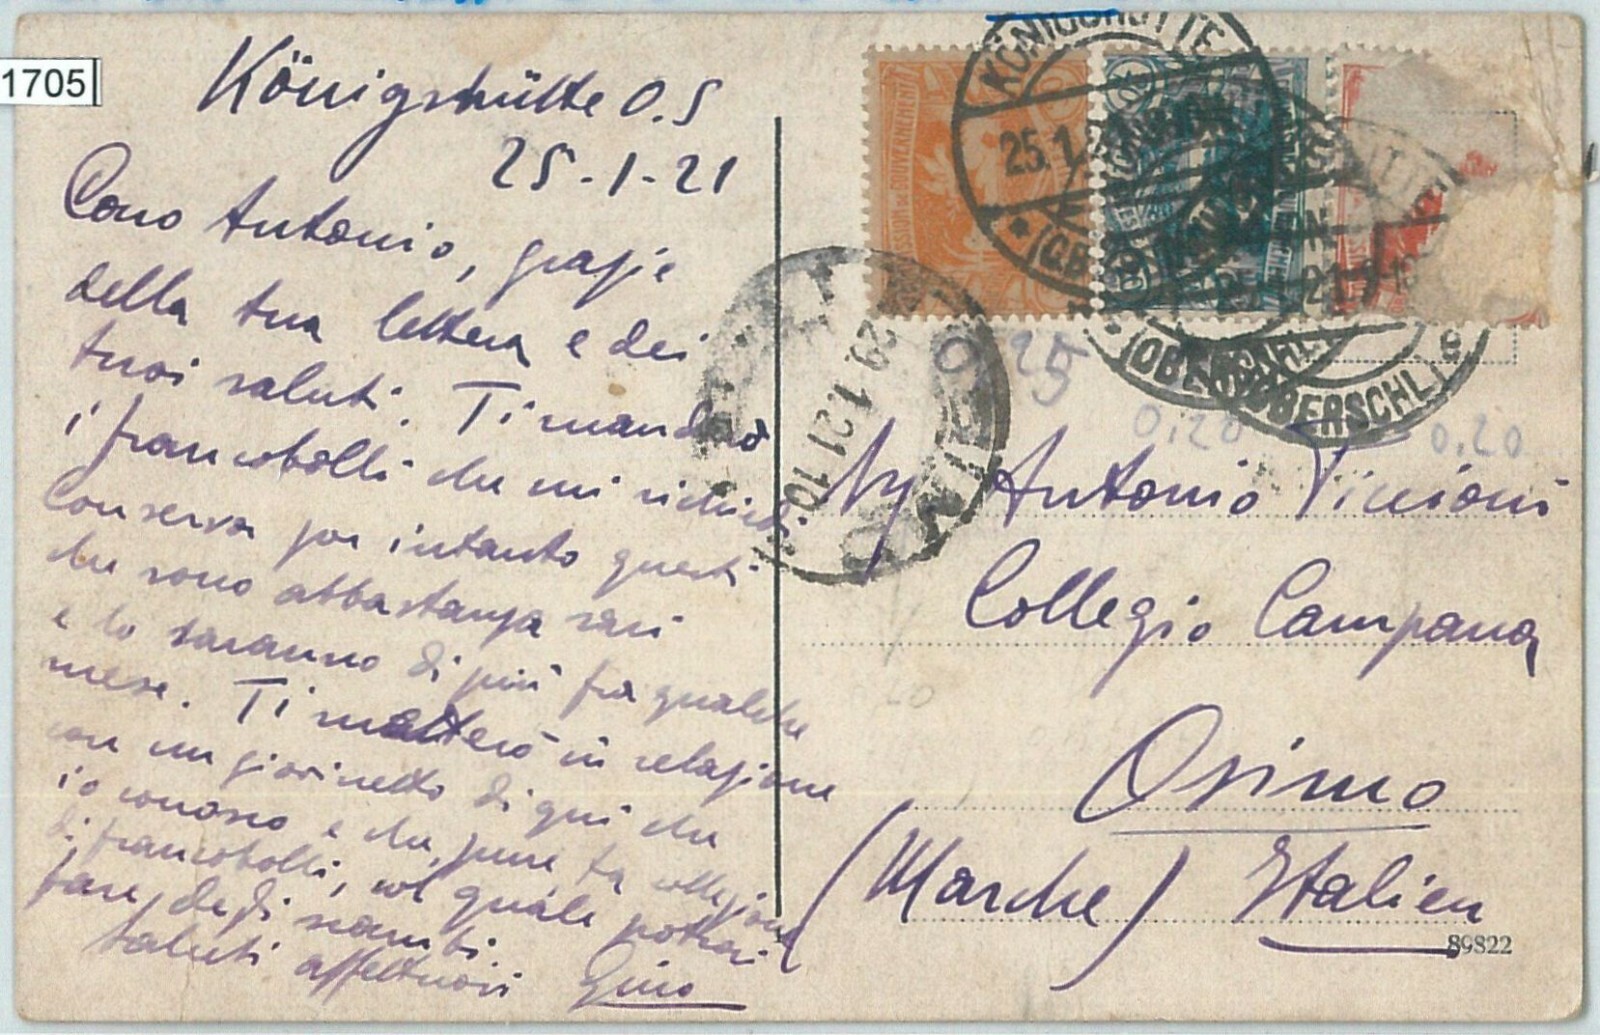 1705
Königshütte O.S
25-1-21
Caro Antonio, grazie
della tua lettera e dei
tuoi saluti. Ti manderò
i francobolli che mi richiedi
Conserva per intanto questi
che sono abbastanza rari
e lo saranno di più fra qualche
mese. Ti metterò in relazione
con un giovinetto di qui che
io conosco e che pure fa collezione
di francobolli, col quale potrai
fare degli scambi.
Saluti affettuosi Gino
KÖNIGSHÜTTE
25.1.
(OBERSCHL.)
OBERSCHL.
e
29.1.21.10
OSIMO
0,25
0,20
0,20
Antonio Piccioni
Collegio Campana
Osimo
(Marche) Italien
89822